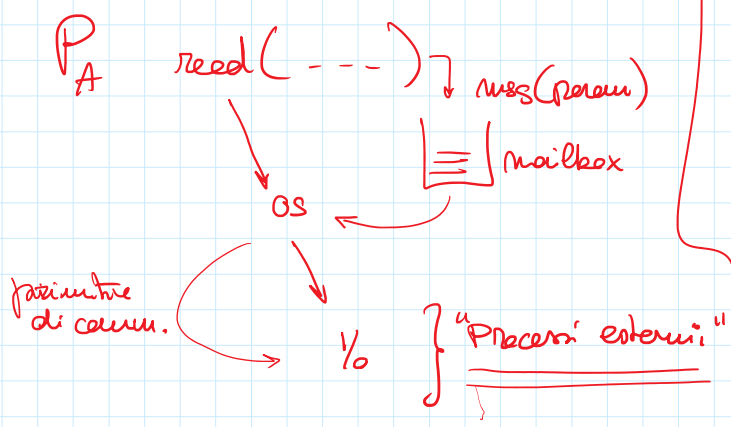 P_A read( - - - )
msg(param)
mailbox
OS
primitive
di comm.
I/O } "Processi esterni"